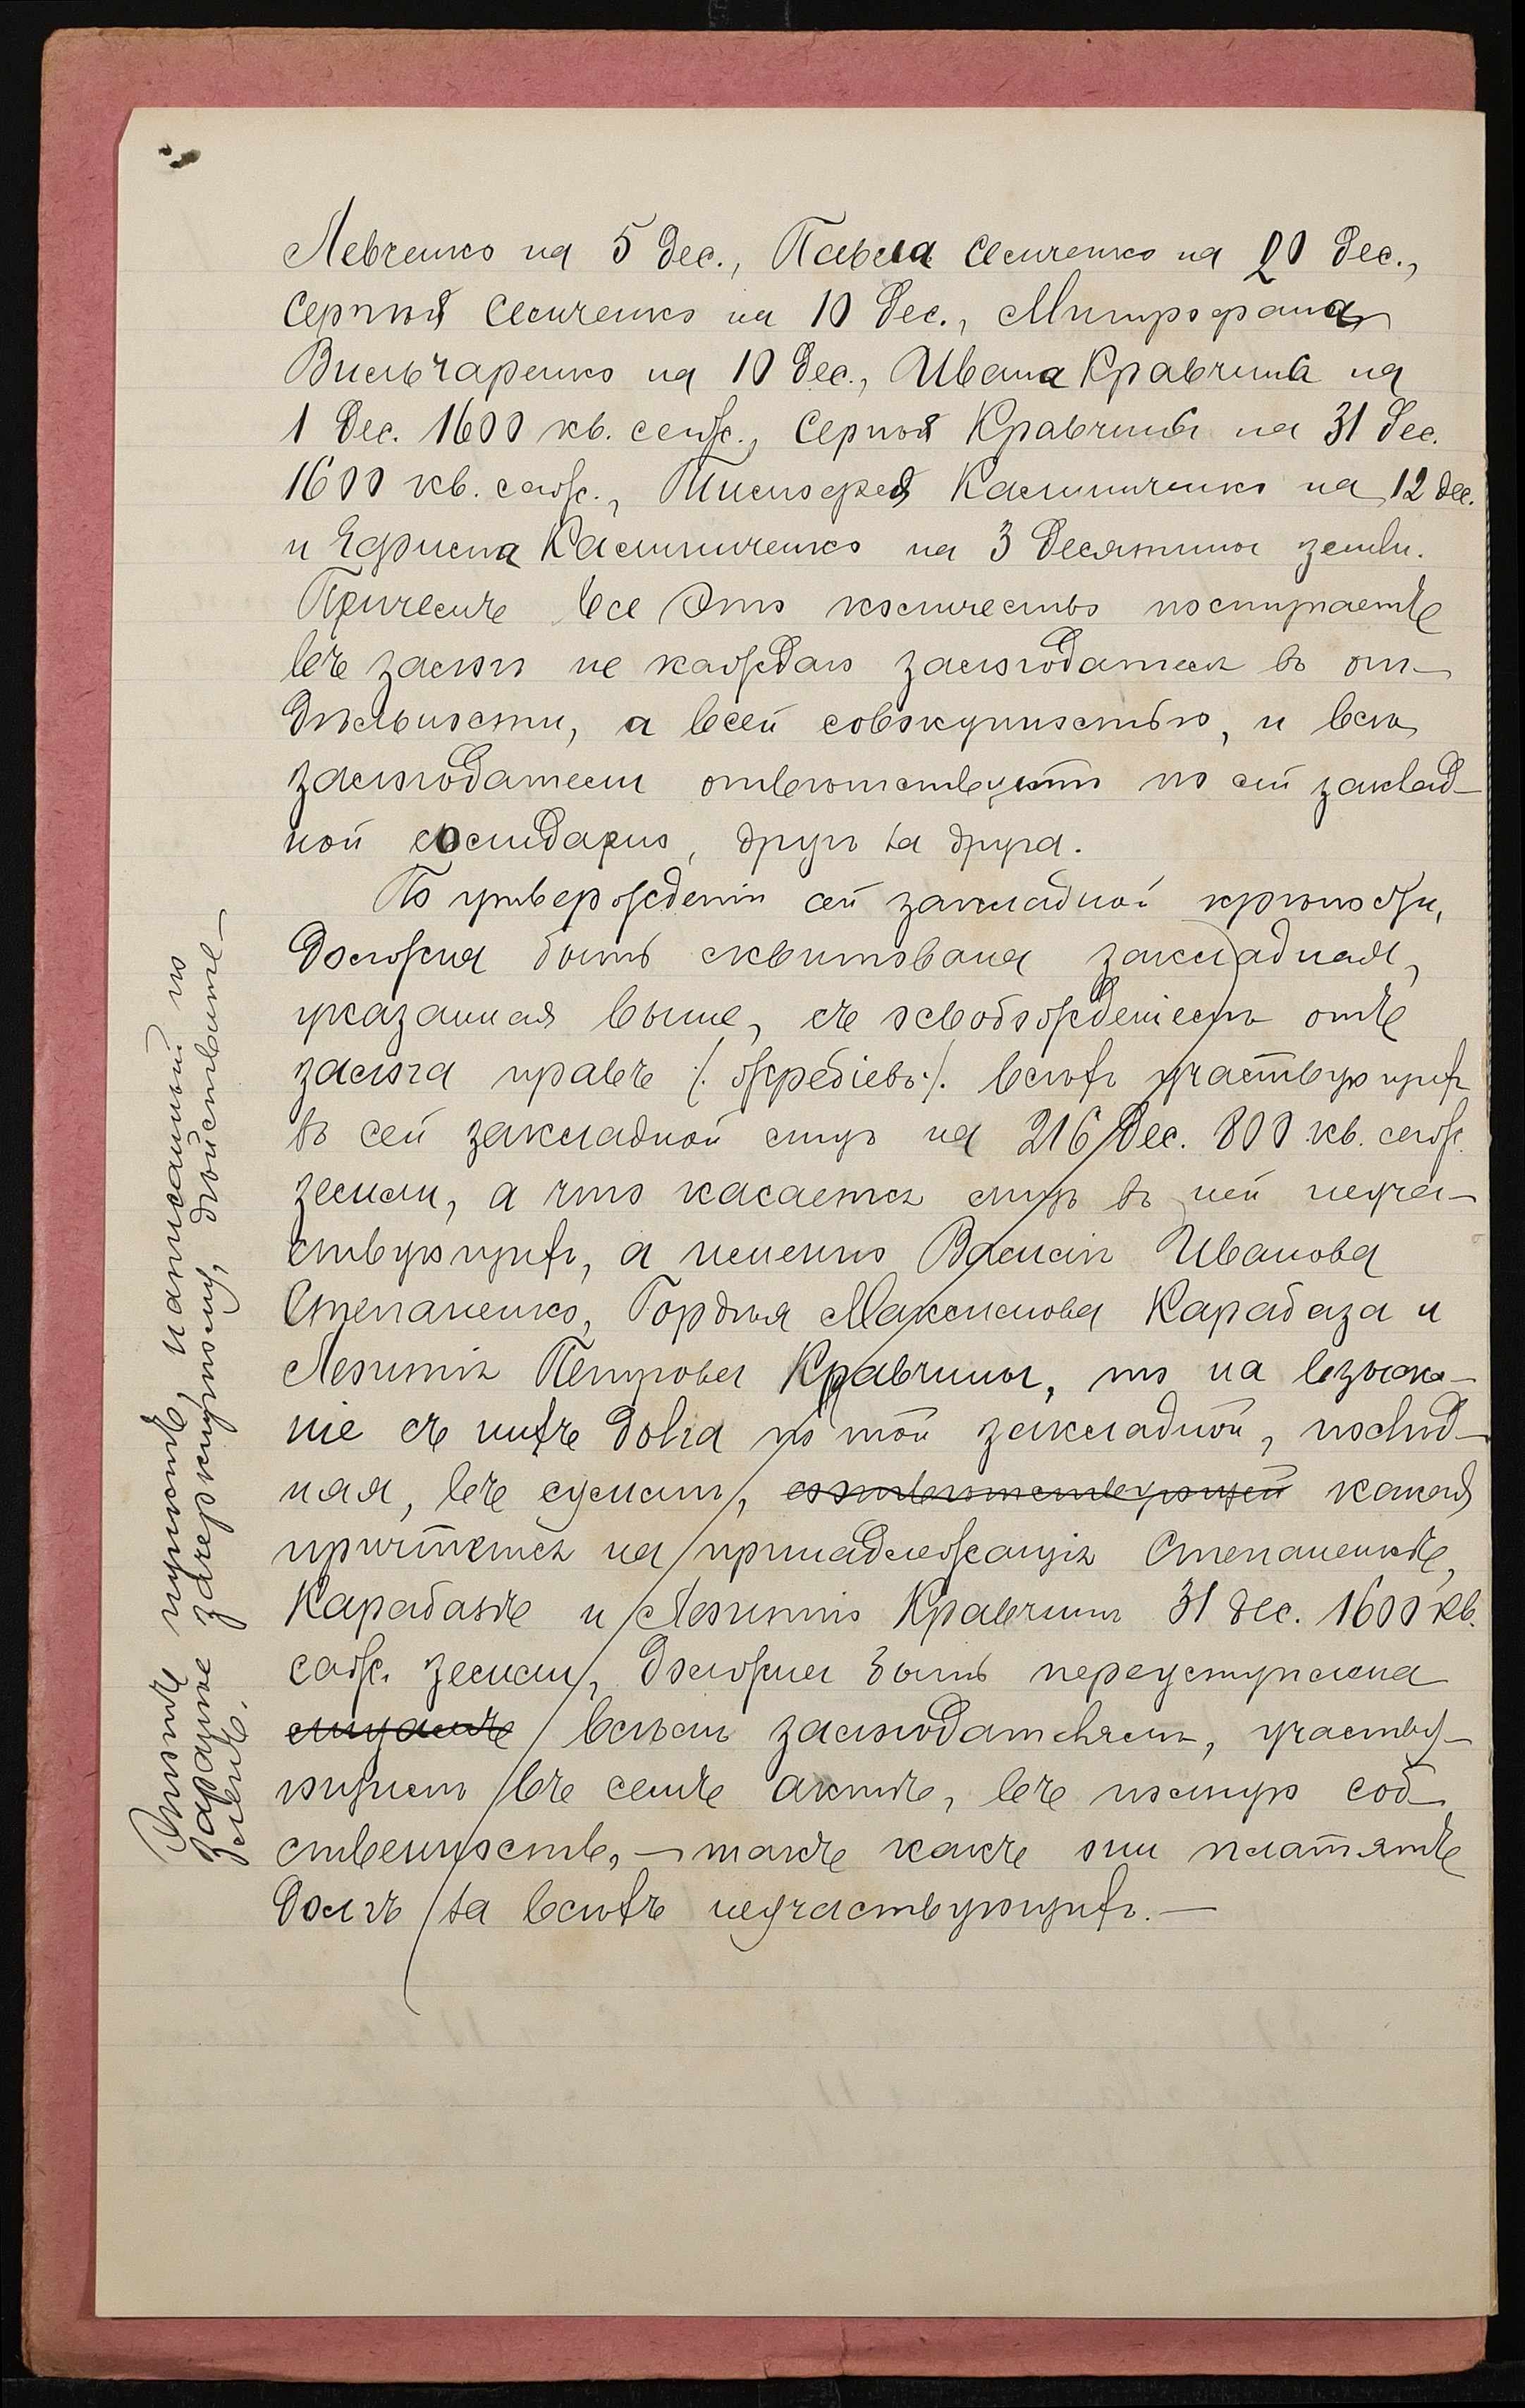 Левченко на 5 дес., Павла Семченко на 20 дес.,
Сергѣя Семченко на 10 дес., Митрофана
Вильчаренко на 10 дес., Ивана Кравчины на
1 дес. 1600 кв. саж., Сергѣя Кравчины на 31 дес.
1600 кв. саж., Тимофея Калиниченко на 12 дес.
и Ефима Калиниченко на 3 десятины земли.
Причемъ все это количество поступаетъ
въ залогъ не каждаго залогодателя въ от-
дѣльности, а всей совокупностью, и всѣ
залогодатели отвѣтствуютъ по сей заклад-
ной солидарно, другъ за друга.
По утвержденіи сей закладной крѣпости,
должна быть сквитована закладная,
указанная выше, съ освобожденіемъ отъ
залога правъ /. жребіевъ ./. всѣхъ участвующихъ
въ сей закладной лицъ на 216 дес. 800 кв. саж.
земли, а что касается лицъ въ ней неуча-
ствующихъ, а именно Василія Иванова
Степаненко, Гордѣя Максимова Карабаза и
Леонтія Петрова Кравчины, то на взыска-
ніе съ нихъ долга по той закладной, послѣд-
няя, въ суммѣ, соотвѣтствующей какая
причтется на принадлежащія Степаненкѣ,
Карабазѣ и Леонтію Кравчинѣ 31 дес. 1600 кв.
саж. земли, должна быть переуступлена
лицамъ всѣмъ залогодателямъ, участву-
ющимъ въ семъ актѣ, въ полную соб-
ственность, — такъ какъ они платятъ
долгъ за всѣхъ неучаствующихъ. —
Этотъ пунктъ, написанный по
заранѣе зачеркнутому, дѣйствите-
ленъ.